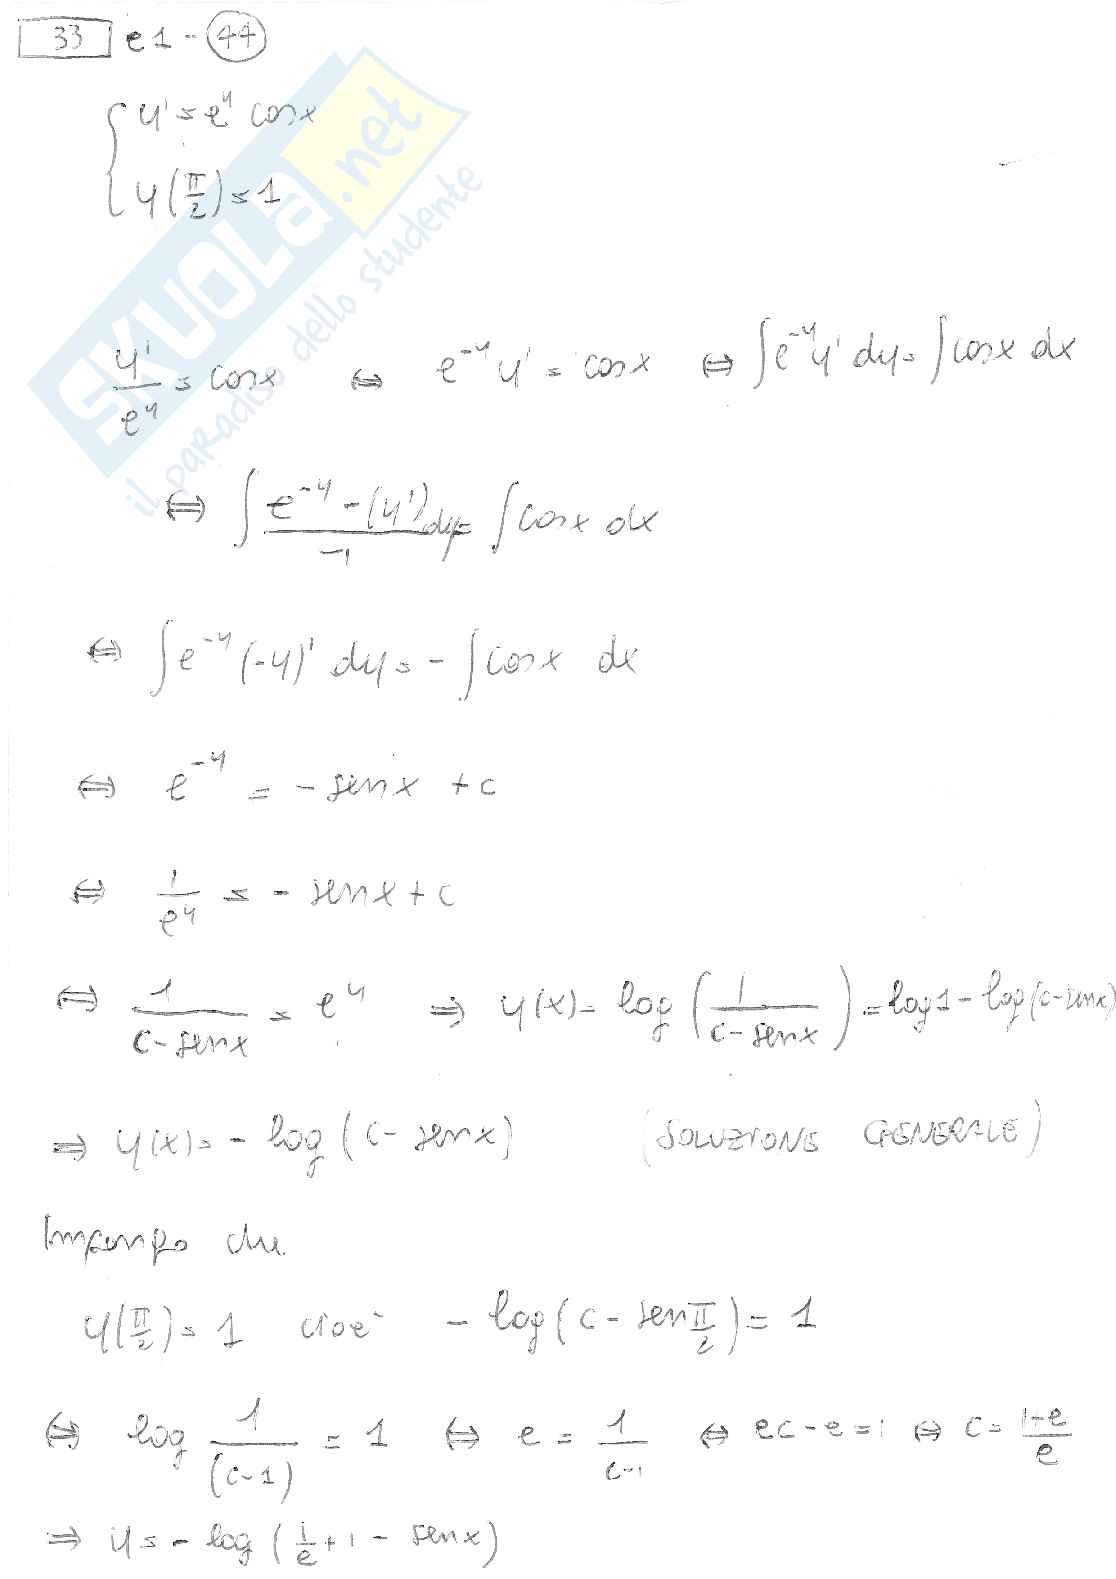 33 e1 - 44
{ y' = e^y cosx
y(π/2) = 1
SKUOLA.net
il paradiso dello studente
y'/e^y = cosx ⇔ e^-y y' = cosx ⇔ ∫e^-y y' dy = ∫cosx dx
⇔ ∫ (e^-y -(y'))/-1 dy = ∫cosx dx
⇔ ∫e^-y (-y)' dy = - ∫cosx dx
⇔ e^-y = - senx + c
⇔ 1/e^y = - senx + c
⇔ 1/(c-senx) = e^y ⇒ y(x) = log(1/(c-senx)) = log1 - log(c-senx)
⇒ y(x) = - log(c-senx) (SOLUZIONE GENERALE)
Impongo che
y(π/2) = 1 cioe' - log(c - sen π/2) = 1
⇔ log 1/(c-1) = 1 ⇔ e = 1/(c-1) ⇔ ec-e=1 ⇔ c = (1-e)/e
⇒ y = - log(1/e + 1 - senx)